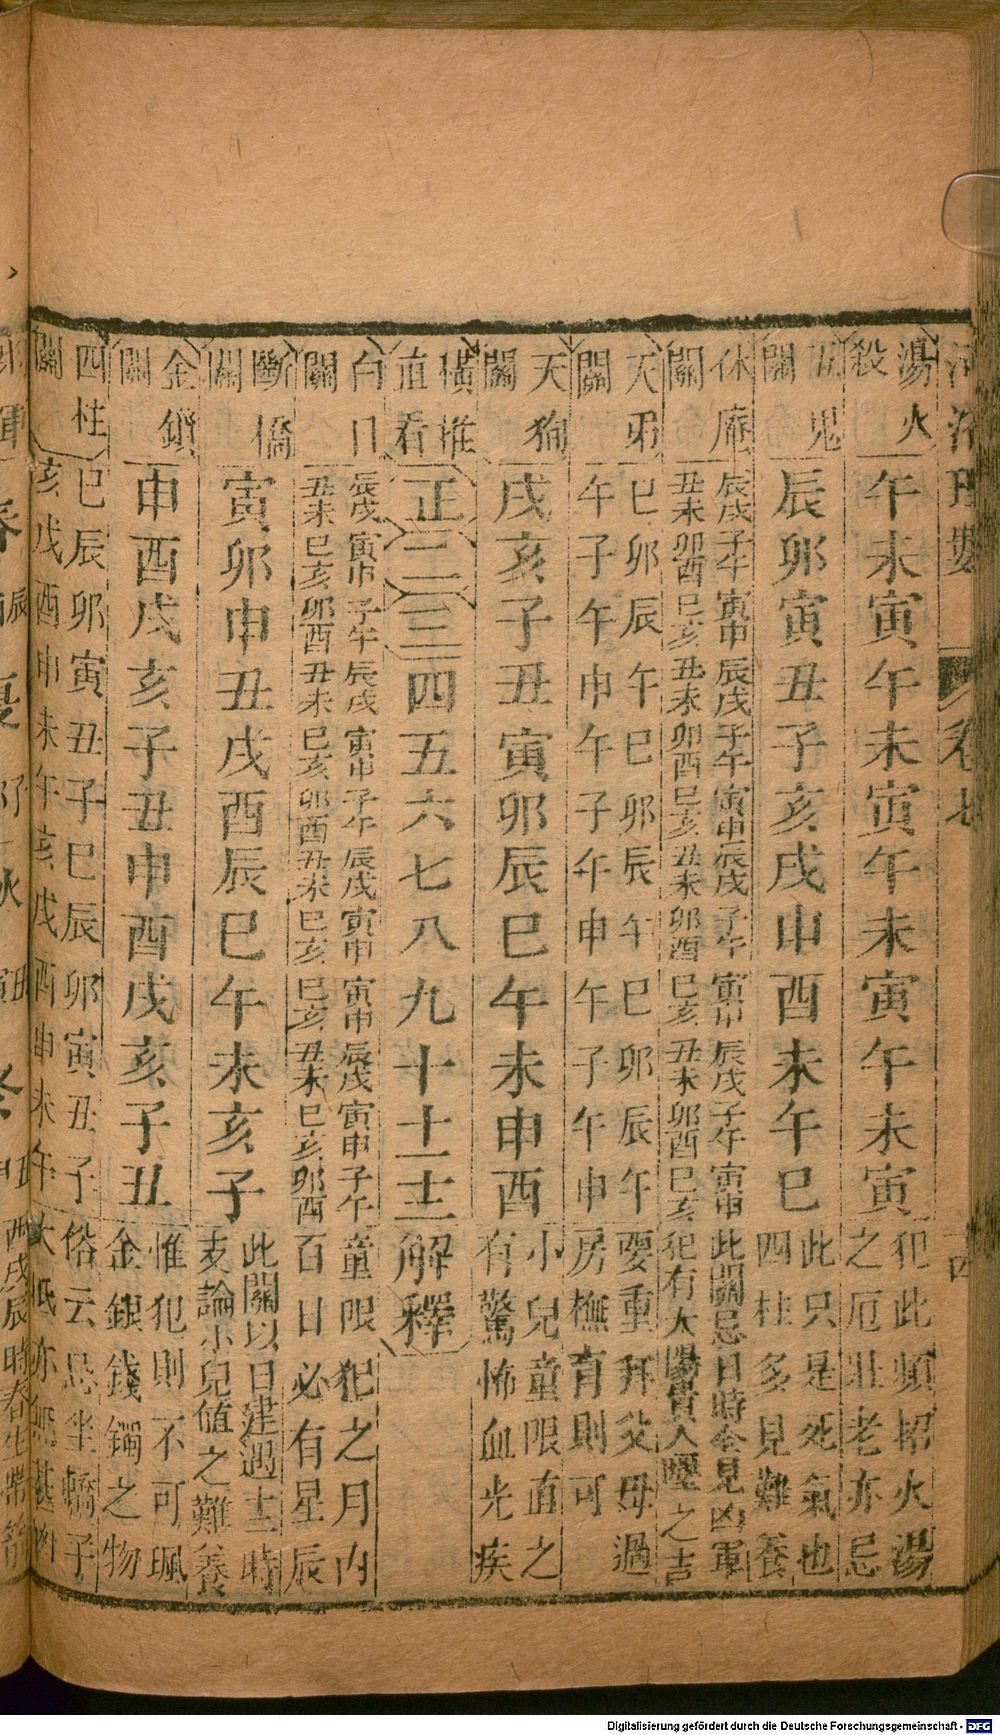 卷七
湯火
殺
午未寅午未寅午未寅午未寅
犯此頻招火湯
之厄壯老亦忌
五鬼
關
辰卯寅丑子亥戌申酉未午巳
此只是死氣也
四柱多見難養
休庵
關
辰戌子午寅申辰戌子午寅申辰戌子午寅申辰戌子午寅申
丑未卯酉巳亥丑未卯酉巳亥丑未卯酉巳亥丑未卯酉巳亥
此關忌日時全見凶軍
犯有太陽貴人壓之吉
天弔
關
巳卯辰午巳卯辰午巳卯辰午
午子午申午子午申午子午申
要重拜父母過
房撫育則可
天狗
關
戌亥子丑寅卯辰巳午未申酉
小兒童限直之
有驚怖血光疾
橫推
直看
正二三四五六七八九十十一十二
解釋
百日
關
辰戌寅申子午辰戌寅申子午辰戌寅申寅申辰戌寅申子午
丑未巳亥卯酉丑未巳亥卯酉丑未巳亥巳亥丑未巳亥卯酉
童限犯之月內
百日必有星辰
斷橋
關
寅卯申丑戌酉辰巳午未亥子
此關以日建遇十二時
支論小兒值之難養
金鎖
關
申酉戌亥子丑申酉戌亥子丑
惟犯則不可珮
金銀錢鐲之物
四柱
關
巳辰卯寅丑子巳辰卯寅丑子
亥戌酉申未午亥戌酉申未午
俗云忌坐轎子
大抵亦無甚凶
Digitalisierung gefördert durch die Deutsche Forschungsgemeinschaft - DFG